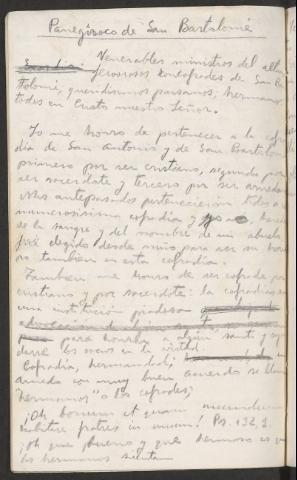 Panegírico de San Bartolomé
Exordio. Venerables ministros del altar
fervorosos cofrades de San Bar
tolomé, queridísimos paisanos, hermanos
todos en Cristo nuestro Señor.
Yo me honro de pertenecer a la cofra
día de San Antonio y de San Bartolomé
primero por ser cristiano, segundo por
ser sacerdote y tercero por ser
Mis antepasados pertenecieron todos a
numerosísima cofradía y yo
de la sangre y del nombre de mi abuelo
fuí elegido desde niño para ser su
no también en esta cofradía.
También me honro de ser cofrade por
cristiano y por sacerdote: la cofradía es
una institución piadosa
para honrar a algún santo y
los unos en la virtud.
Cofradía, hermandad;
con muy buen acuerdo se llama
"hermanos" a los cofrades;
¡Oh bonum et quam iucundum
habitare fratres in unum! Ps. 132, 1.
¡Oh que bueno y que hermoso es que
los hermanos